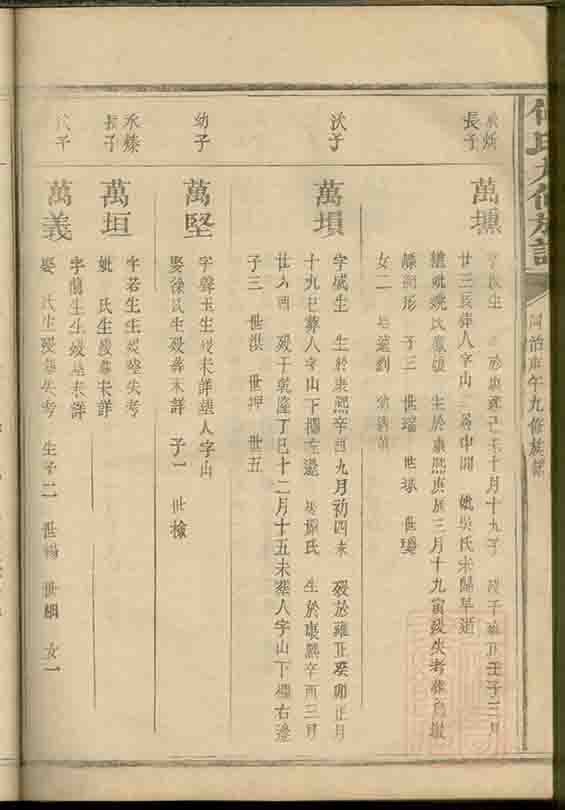 何氏九修族譜
同治庚午九修族譜
長子
萬壎
生於康熙己未十月十九子 歿于雍正壬子三月
廿三亥葬人字山 中間 娶吳氏未歸早逝
繼娶姚氏 生於康熙庚辰三月十九寅歿失考葬
形 子三 世瑞 世球 世璦
女二 適劉
次子
萬塤
字成生 生於康熙辛酉九月初四未 歿於雍正癸卯正月
十九巳葬人字山下欄左邊 娶 氏 生於康熙辛酉三月
廿八酉 歿于乾隆丁巳十二月十五未葬人字山下欄右邊
子三 世洪 世押 世五
幼子
萬堅
字聲玉生歿未詳葬人字山
娶徐氏生歿葬未詳 子一 世橡
永
長子
萬垣
字若生生歿葬失考
妣 氏生歿葬未詳
次子
萬義
字蘭生生歿葬未詳
娶 氏生歿葬失考 生子二 世楊 世綱 女一